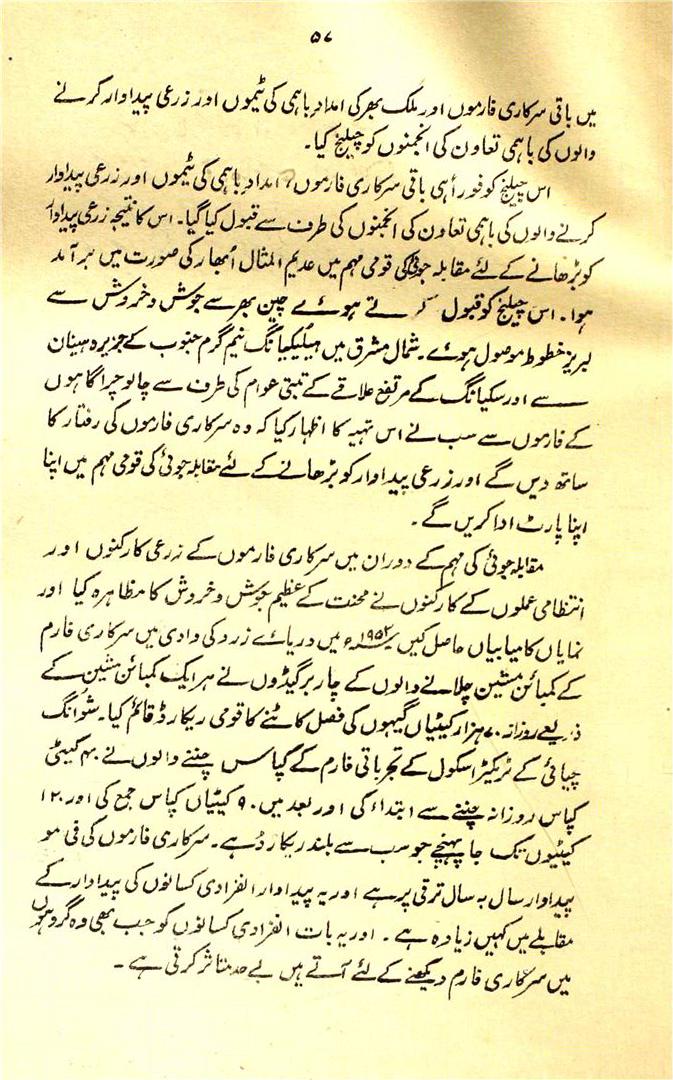 ۵۷
میں باقی سرکاری فارموں اور ملک بھر کی امداد باہمی کی ٹیموں اور زرعی پیداوار کرنے
والوں کی باہمی تعاون کی انجمنوں کو چیلنج کیا۔
اس چیلنج کو فوراً ہی باقی سرکاری فارموں، امداد باہمی کی ٹیموں اور زرعی پیداوار
کرنے والوں کی باہمی تعاون کی انجمنوں کی طرف سے قبول کیا گیا۔ اس کا نتیجہ زرعی پیداوار
کو بڑھانے کے لئے مقابلہ جوئی کی قومی مہم میں عدیم المثال اُبھار کی صورت میں برآمد
ہوا۔ اس چیلنج کو قبول کرتے ہوئے چین بھر سے جوش و خروش سے
لبریز خطوط موصول ہوئے۔ شمال مشرق میں ہیلنگکیانگ نیم گرم جنوب کے جزیرہ ہینان
سے اور سکیانگ کے مرتفع علاقے کے تبتی عوام کی طرف سے چالو چراگاہوں
کے فارموں سے سب نے اس تہیہ کا اظہار کیا کہ وہ سرکاری فارموں کی رفتار کا
ساتھ دیں گے اور زرعی پیداوار کو بڑھانے کے لئے مقابلہ جوئی کی قومی مہم میں اپنا
اپنا پارٹ ادا کریں گے۔
مقابلہ جوئی کی مہم کے دوران میں سرکاری فارموں کے زرعی کارکنوں اور
انتظامی عملوں کے کارکنوں نے محنت کے عظیم جوش و خروش کا مظاہرہ کیا اور
نمایاں کامیابیاں حاصل کیں ۱۹۵۲ء میں دریائے زرد کی وادی میں سرکاری فارم
کے کمبائن مشین چلانے والوں کے چار برگیڈوں نے ہر ایک کمبائن مشین کے
ذریعے روزانہ ۷۰ ہزار کیٹیاں گیہوں کی فصل کاٹنے کا قومی ریکارڈ قائم کیا۔ شوانگ
چیائی کے ٹریکٹر اسکول کے تجرباتی فارم کے کپاس چننے والوں نے ۴۰ کیٹی
کپاس روزانہ چننے سے ابتداء کی اور بعد میں ۹۰ کیٹیاں کپاس جمع کی اور ۱۲۰
کیٹیوں تک جا پہنچے جو سب سے بلند ریکارڈ ہے۔ سرکاری فارموں کی فی مو
پیداوار سال بہ سال ترقی پر ہے اور یہ پیداوار انفرادی کسانوں کی پیداوار کے
مقابلے میں کہیں زیادہ ہے۔ اور یہ بات انفرادی کسانوں کو جب بھی وہ گروہوں
میں سرکاری فارم دیکھنے کے لئے آتے ہیں بے حد متاثر کرتی ہے۔